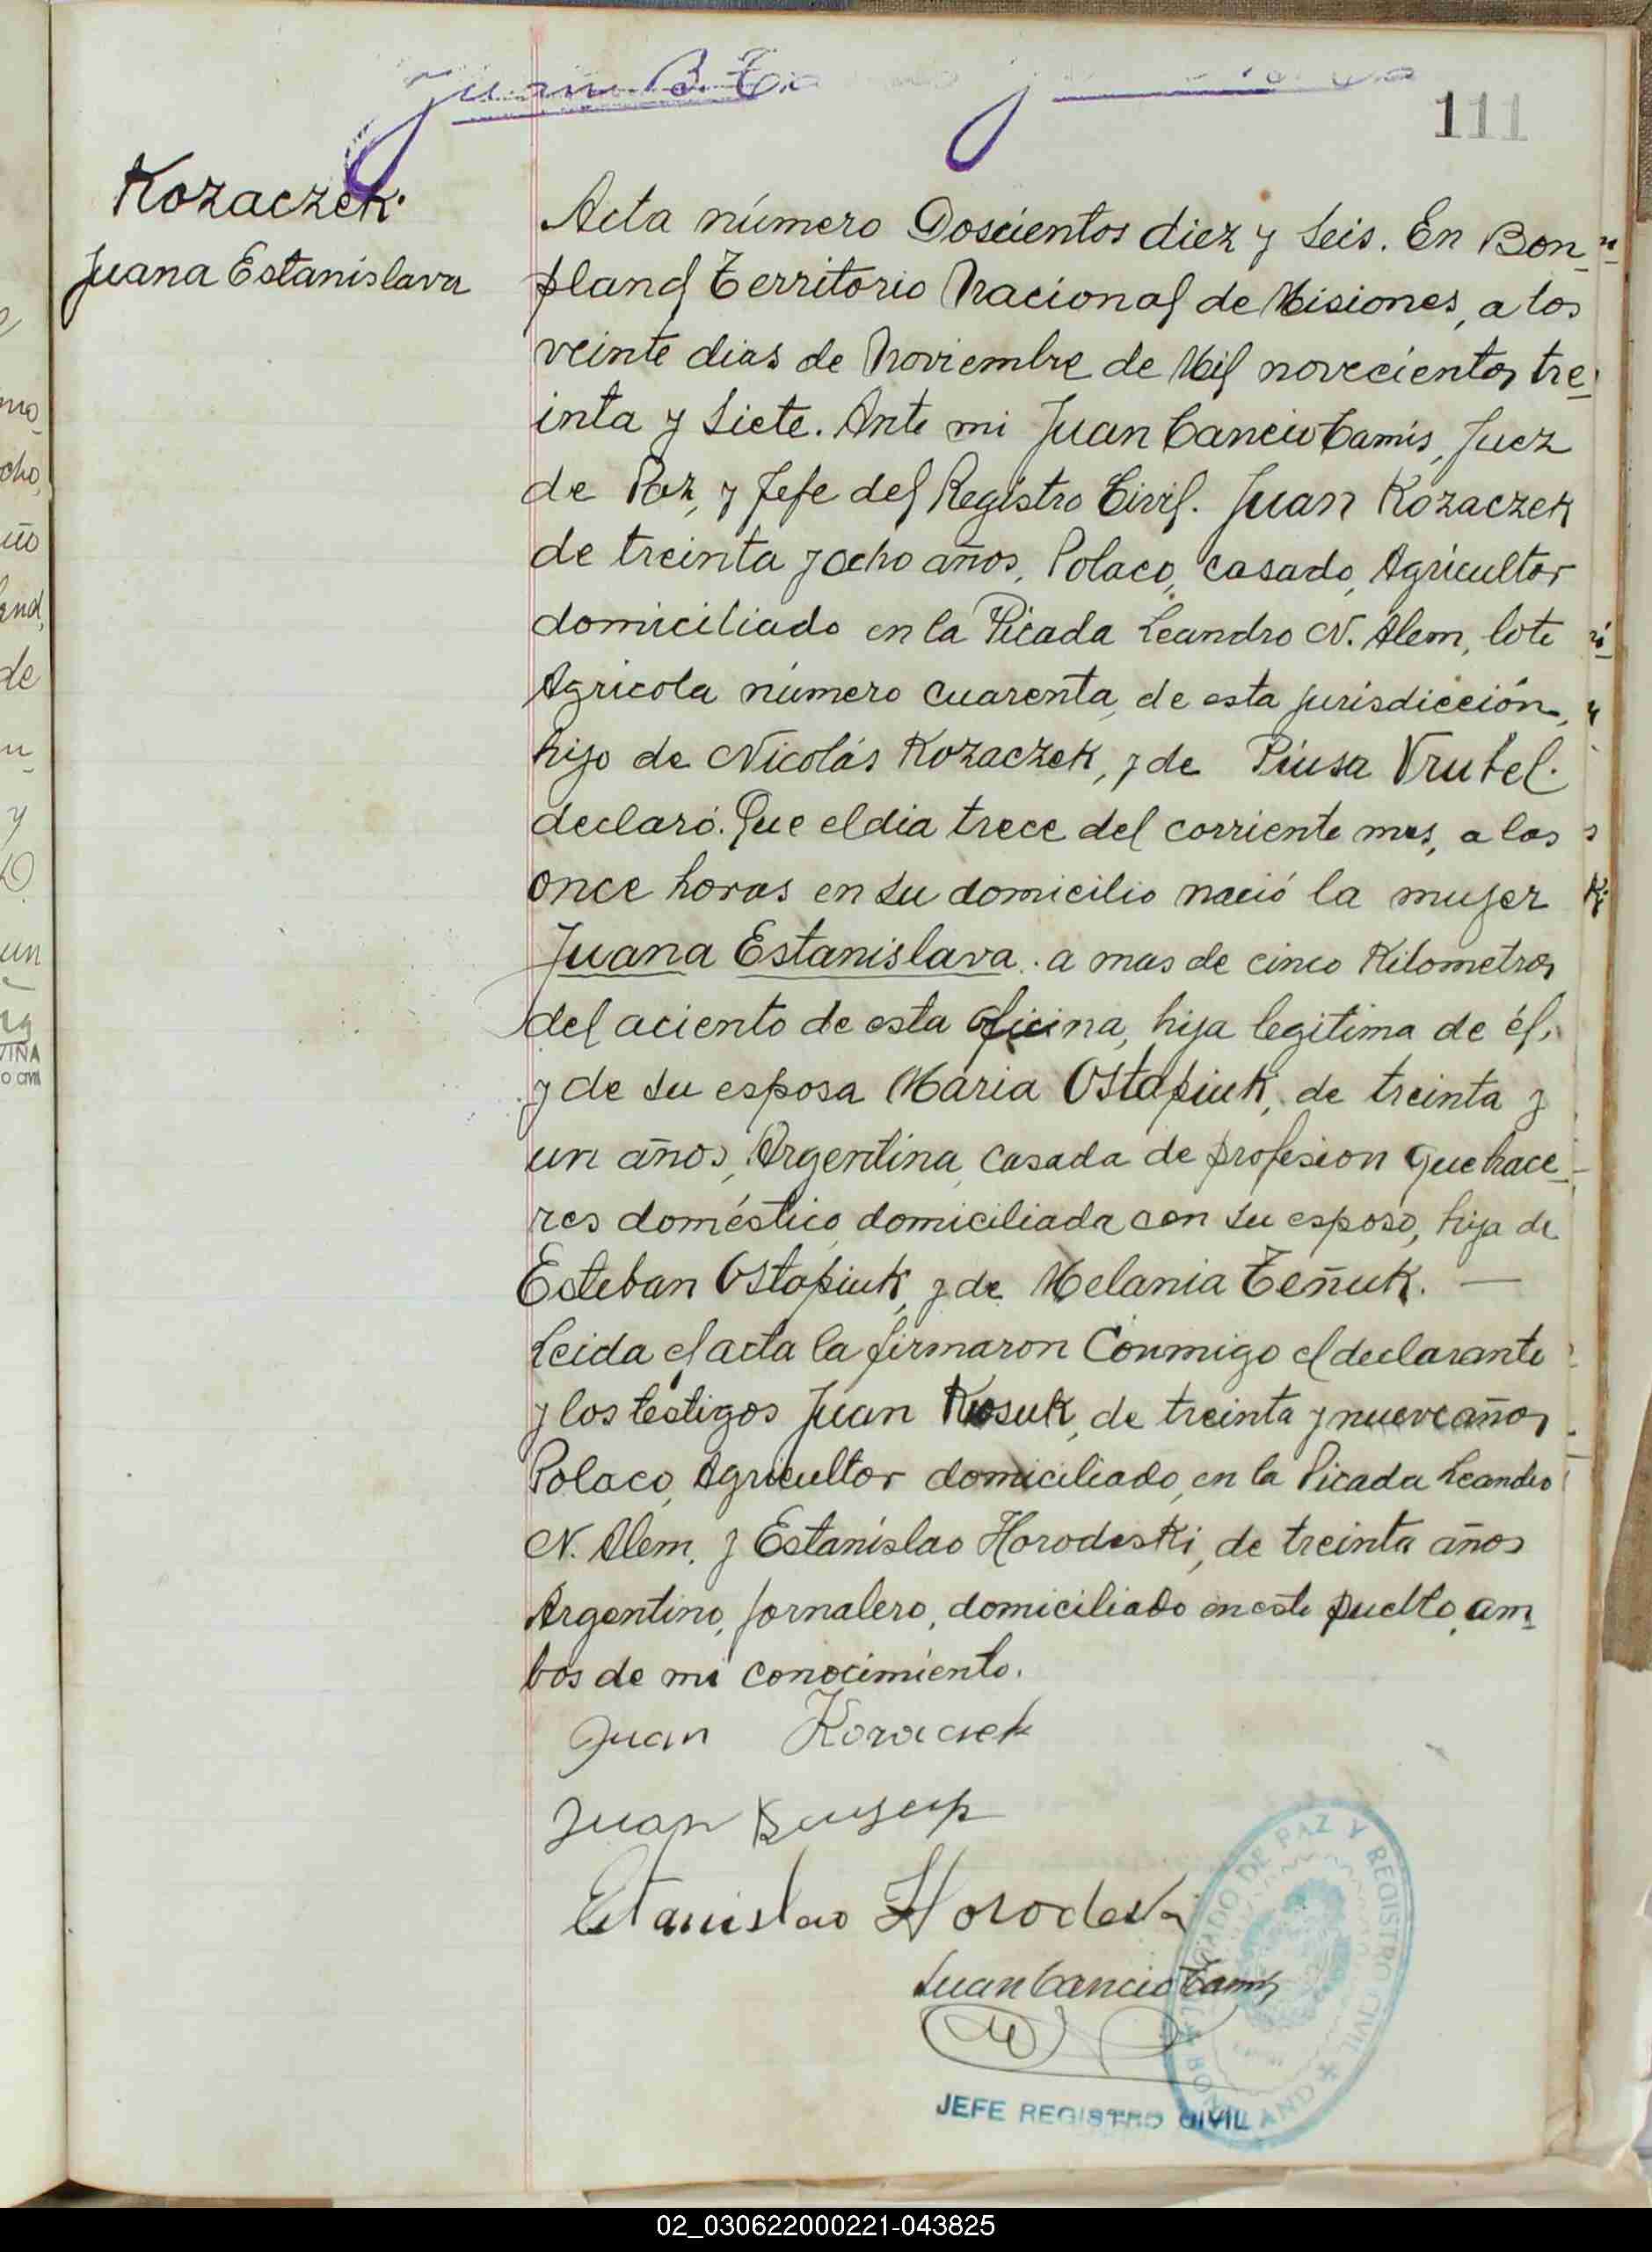 111
Kozaczek.
Juana Estanislava
Acta número Doscientos diez y Seis. En Bon-
pland Territorio Nacional de Misiones, a los
veinte dias de Noviembre de Mil novecientos tre-
inta y Siete. Ante mi Juan Cancio Camis, Juez
de Paz, y Jefe del Registro Civil. Juan Kozaczek
de treinta y ocho años, Polaco, casado, Agricultor
domiciliado en la Picada Leandro N. Alem, lote
Agricola número cuarenta, de esta jurisdicción,
hijo de Nicolás Kozaczek, y de Piusa Vrubel.
declaró. Que el dia trece del corriente mes, a las
once horas en su domicilio nació la mujer
Juana Estanislava. a mas de cinco Kilometros
del aciento de esta oficina, hija legitima de él,
y de su esposa Maria Ostapiuk, de treinta y
un años, Argentina, casada de profesion quehace-
res doméstico, domiciliada con su esposo, hija de
Esteban Ostapiuk, y de Melania Teñuk. —
Leida el acta la firmaron Conmigo el declarante
y los testigos Juan Kosuk, de treinta y nueve años
Polaco, Agricultor domiciliado, en la Picada Leandro
N. Alem, y Estanislao Horodeski, de treinta años
Argentino, jornalero, domiciliado en este pueblo, am-
bos de mi conocimiento.
Juan Kozaczek
Juan
Estanislao Horodeski
Juan Cancio Camis
JUZGADO DE PAZ Y REGISTRO CIVIL BONPLAND
JEFE REGISTRO CIVIL
02_030622000221-043825